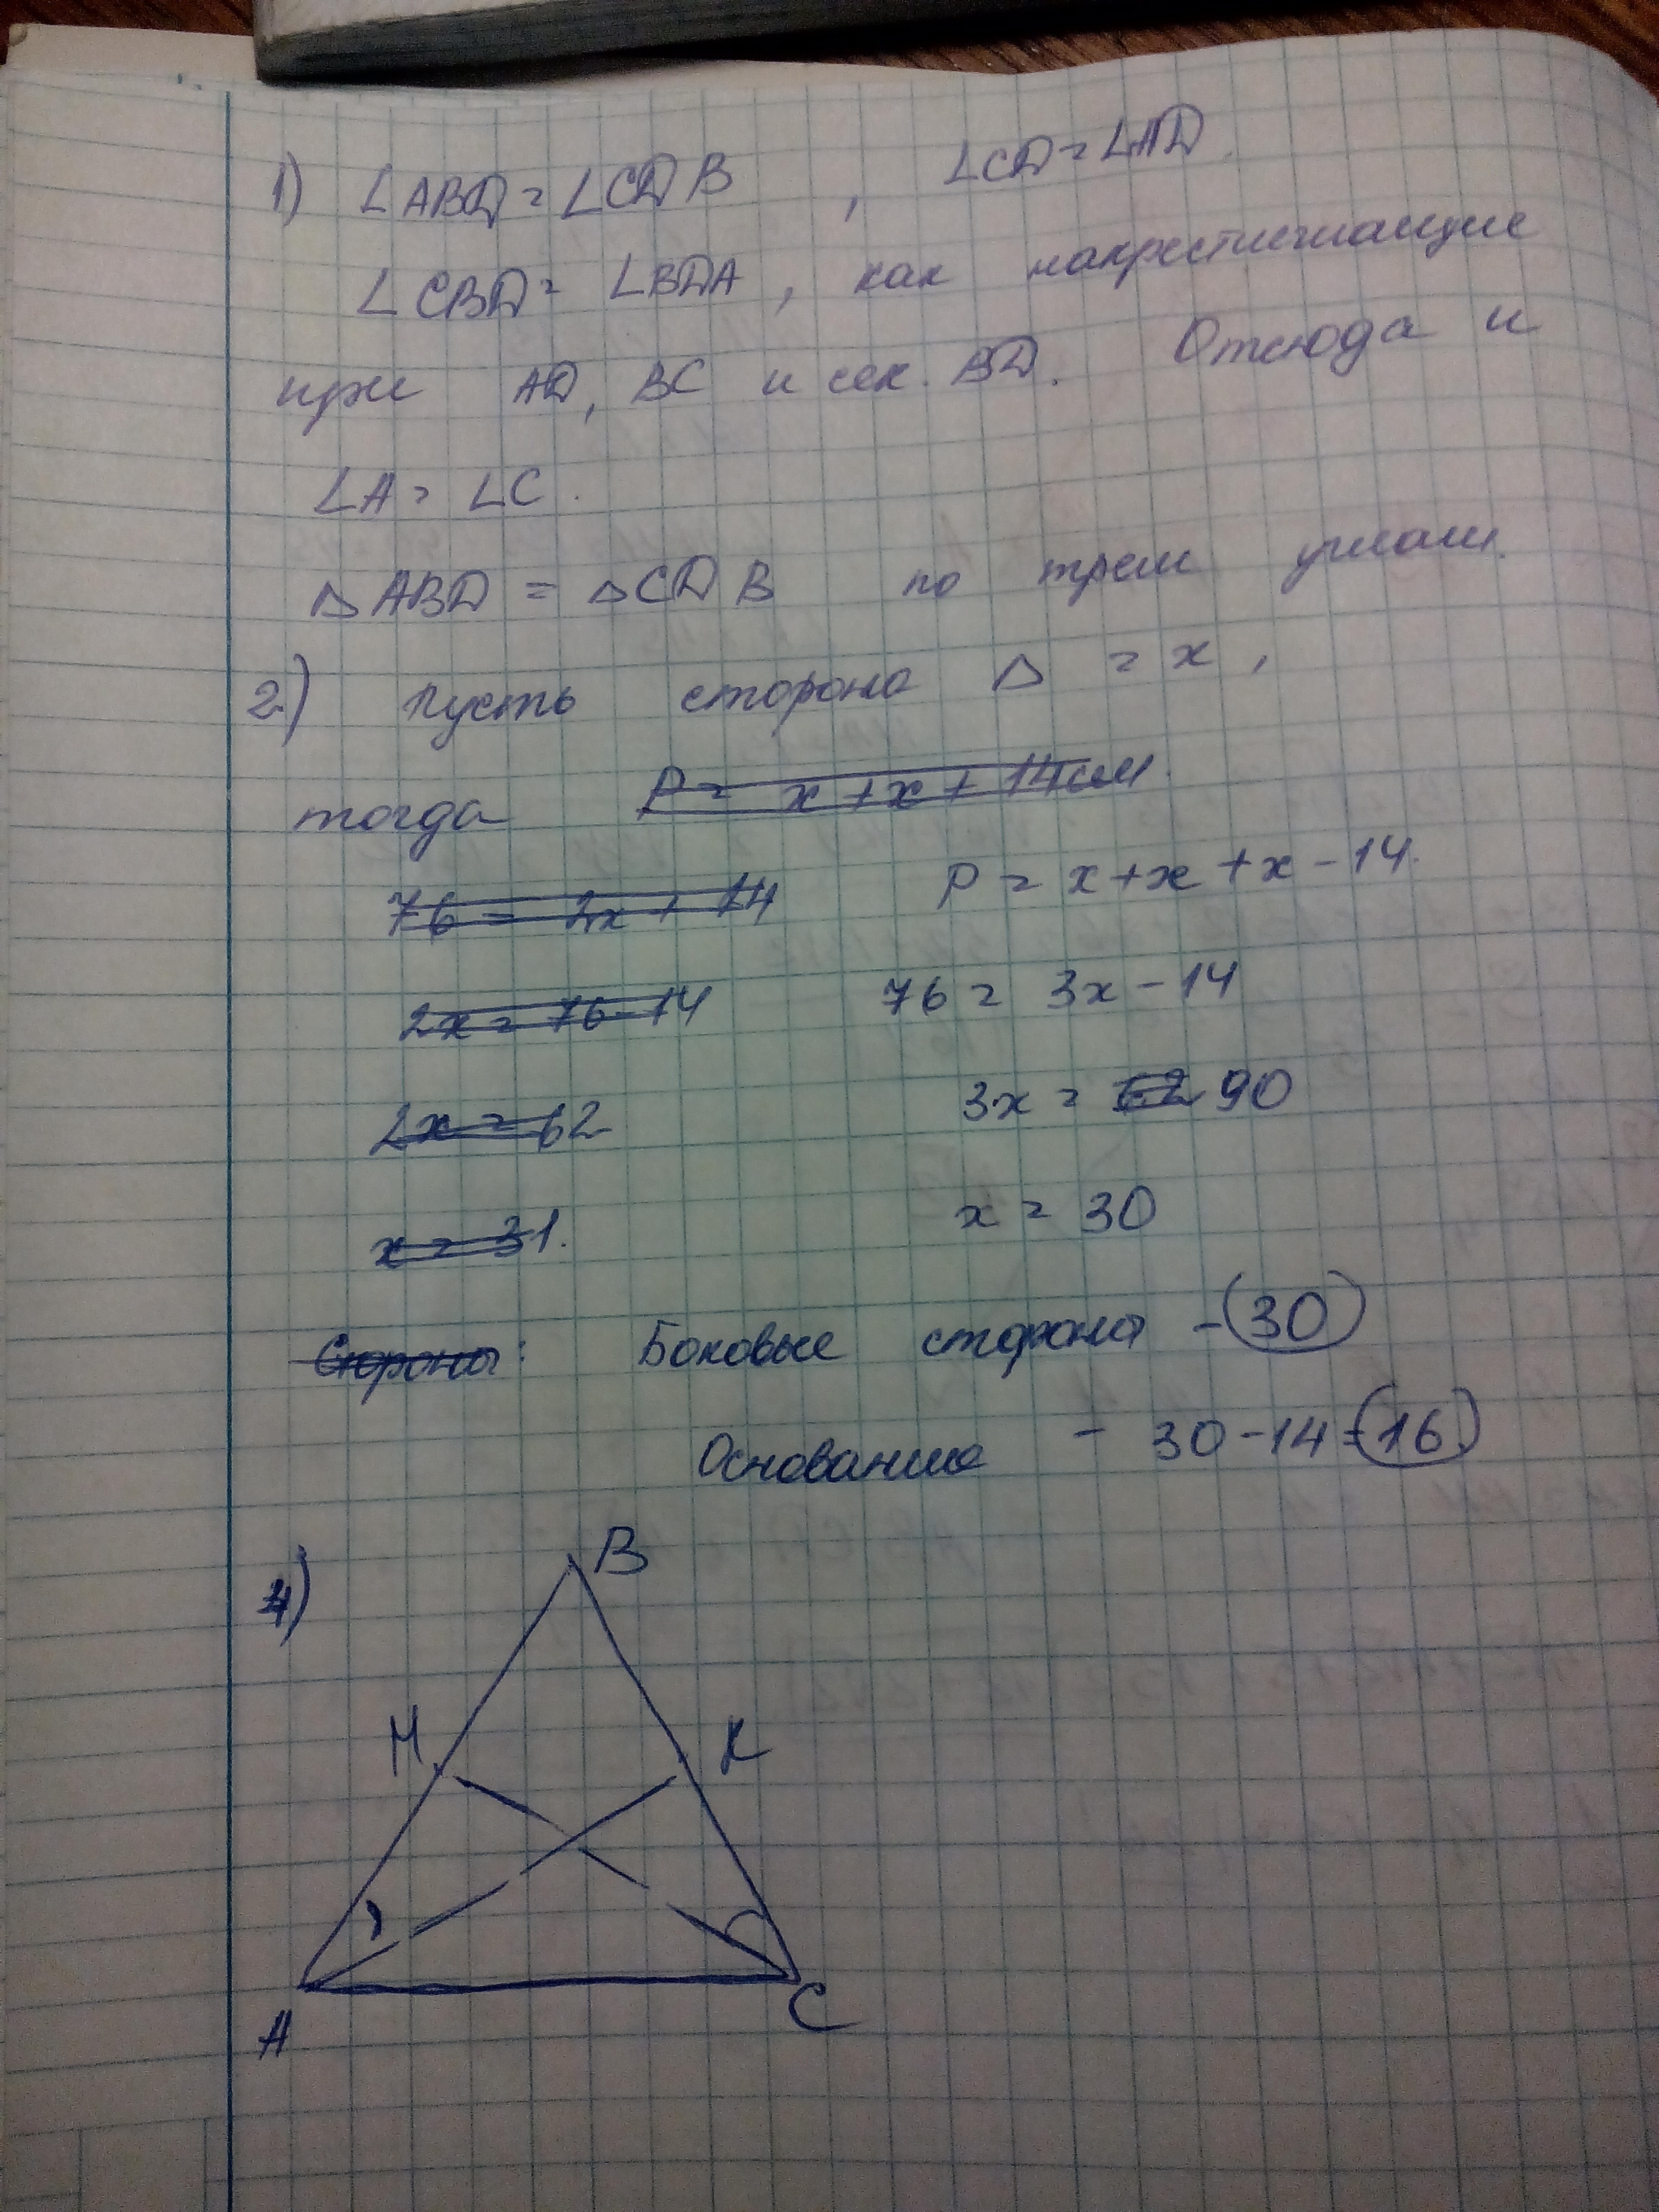 1) ∠ABD = ∠CDB , ∠CD = ∠AD.
∠CBD = ∠BDA, как накрестлежащие
при AD, BC и сек. BD. Отсюда и
∠A = ∠C.
△ABD = △CDB по трем углам.
2) Пусть сторона △ = x,
тогда P = x + x + 14см.
76 = 2x + 14 P = x + x + x - 14.
2x = 76 - 14 76 = 3x - 14
2x = 62 3x = 62 90
x = 31. x = 30
Стороны: Боковые стороны - 30
Основание - 30 - 14 = 16
4)
B
M K
A C